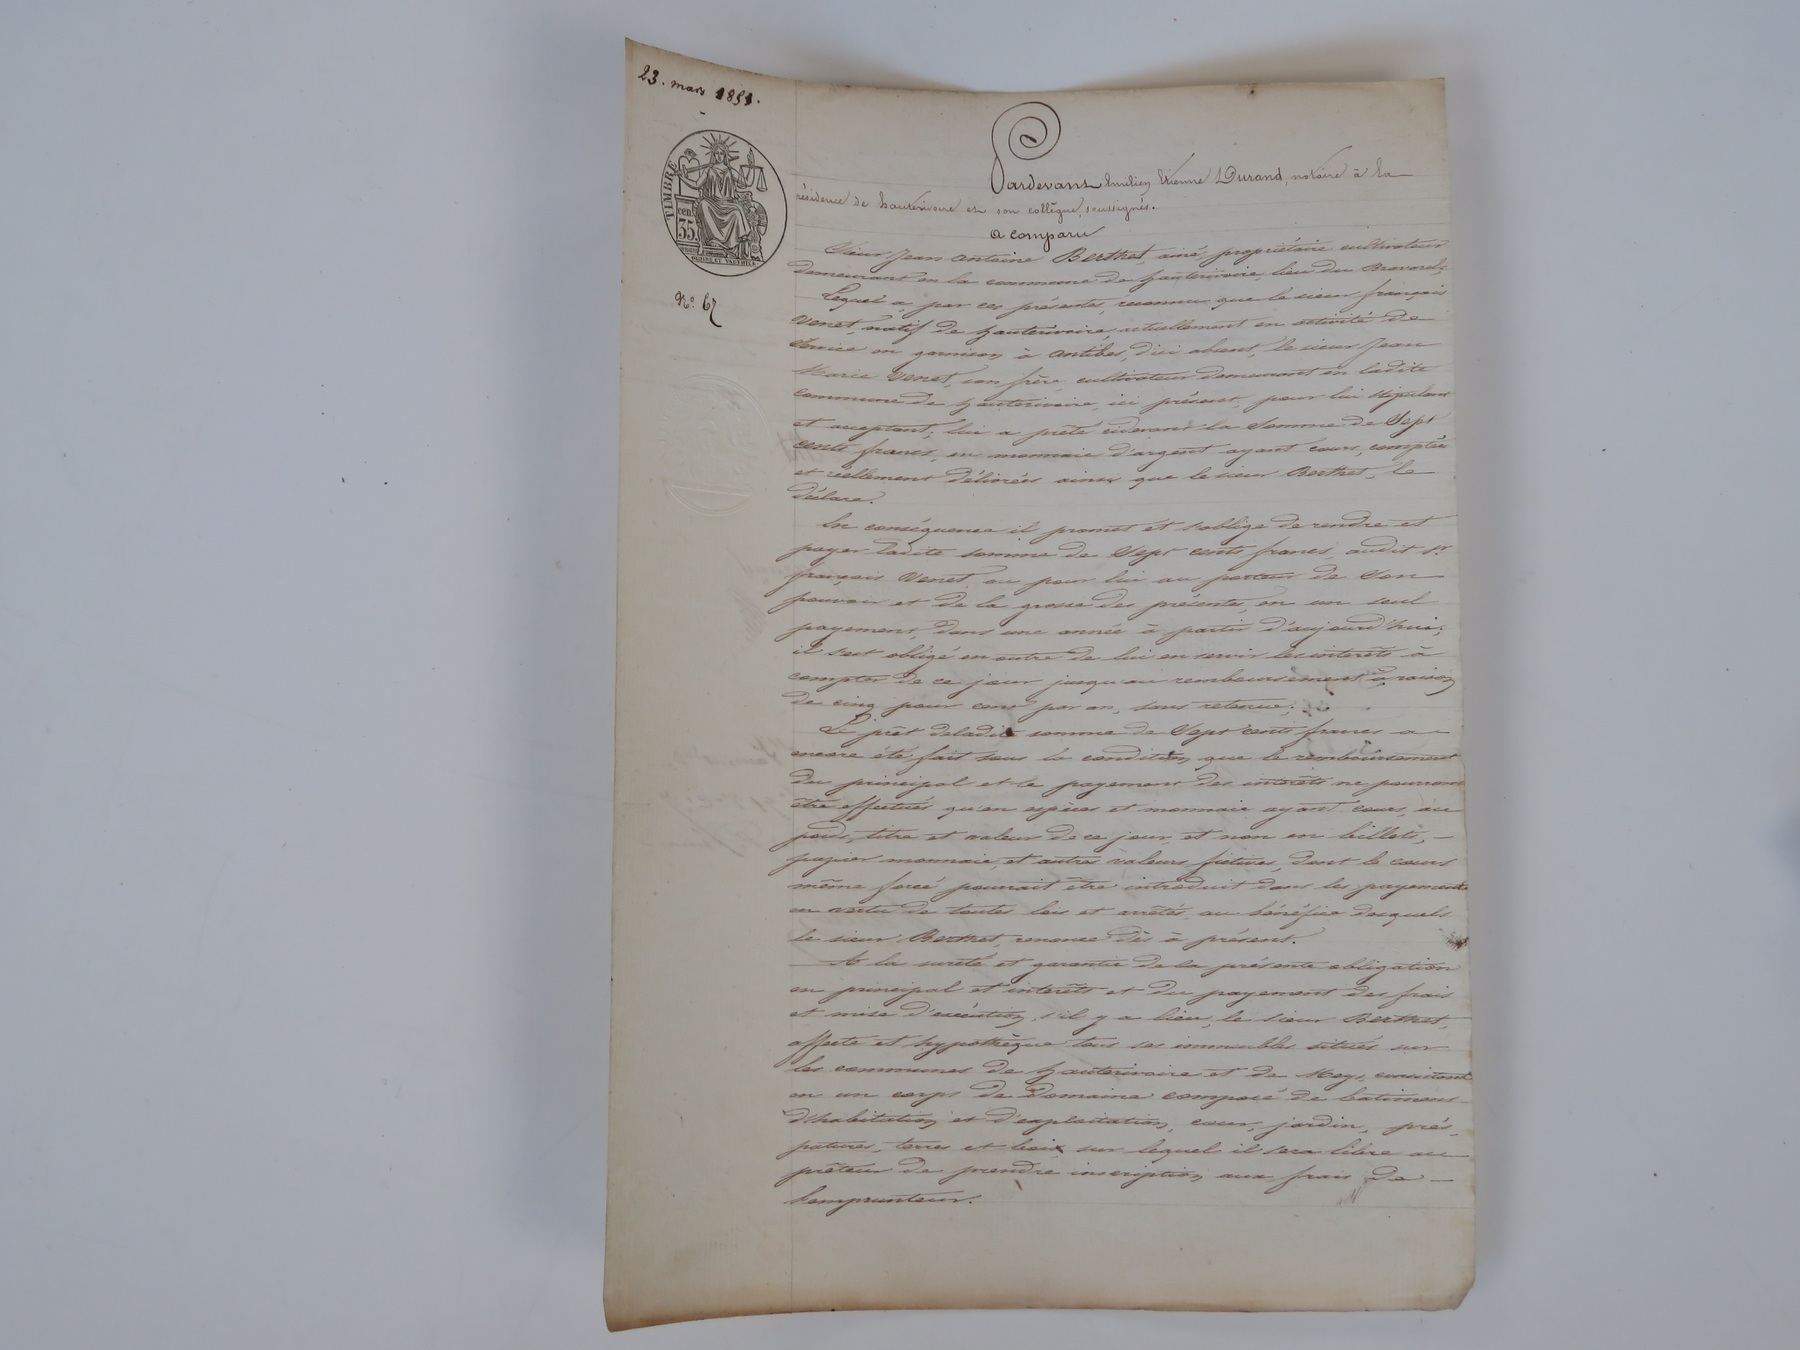 23. mars 1851.
TIMBRE
35 cent.
N.º 67
Pardevant Emilien Etienne Durand, notaire à la
résidence de hauterivoire et son collègue, soussignés.
a comparu
Sieur Jean antoine Berthet ainé propriétaire cultivateur
demeurant en la commune de hauterivoire, lieu du
Lequel a, par ces présentes, reconnu que le sieur françois
Venet, natif de hauterivoire, actuellement en activité de
Service en garnison à antibes, d'ici absent, le sieur Jean
Marie Venet, son frère, cultivateur demeurant en ladite
commune de hauterivoire, ici présent, pour lui stipulant
et acceptant; lui a prêté cidevant la Somme de Sept
cents francs, en monnaie d'argent ayant cours, comptés
et réellement délivrés ainsi que le sieur Berthet, le
déclare.
En conséquence il promet et s'oblige de rendre et
payer ladite somme de Sept cents francs, audit sr.
françois Venet, ou pour lui au porteur de Son
pouvoir et de la grosse des présentes, en un seul
payement, dans une année à partir d'aujourd'hui;
il s'est obligé en outre de lui en servir les interêts à
compter de ce jour jusqu'au remboursement à raison
de cinq pour cent par an, sans retenue;
Le prêt deladite somme de Sept cents francs a
encore été fait sous la condition que le remboursement
du principal et le payement des interêts ne pourront
être effectués qu'en espèces et monnaie ayant cours, au
poids, titre et valeur de ce jour, et non en billets,
papier monnaie, et autres valeurs fictives, dont le cours
même forcé pourrait être introduit dans les payements
en vertu de toutes lois et arrêtés au bénéfice desquels
le sieur Berthet, renonce dès à présent.
A la sureté et garantie de la présente obligation
en principal et interêts et du payement des frais
et mise d'exécution, s'il y a lieu, le sieur Berthet,
affecte et hypothèque tous ses immeubles situés sur
les communes de hauterivoire et de Meys, consistant
en un corps de Domaine composé de batimens
d'habitation et d'exploitation, cour, jardin, prés,
patures, terres et bois, sur lequel il sera libre au
prêteur de prendre inscription aux frais de
l'emprunteur.